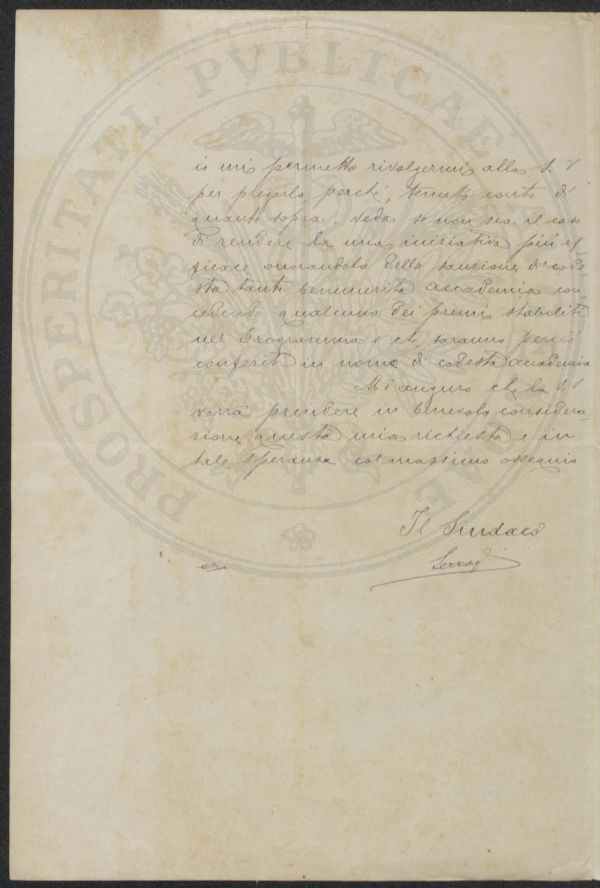 PROSPERITATI PVBLICAE
io mi permetto rivolgermi alla S. V
per pregarla perché, tenuto conto di
quanto sopra, veda se non sia il caso
di rendere la mia iniziativa più ef
ficace onorandola della sanzione di code
sta tanto benemerita accademia con
cedendo qualcuno dei premi stabiliti
nel Programma e che saranno perciò
conferiti in nome di codesta accademia
Mi auguro che la S. V
vorrà prendere in benevola considera-
zione questa mia richiesta e in
tale speranza col massimo ossequio
Il Sindaco